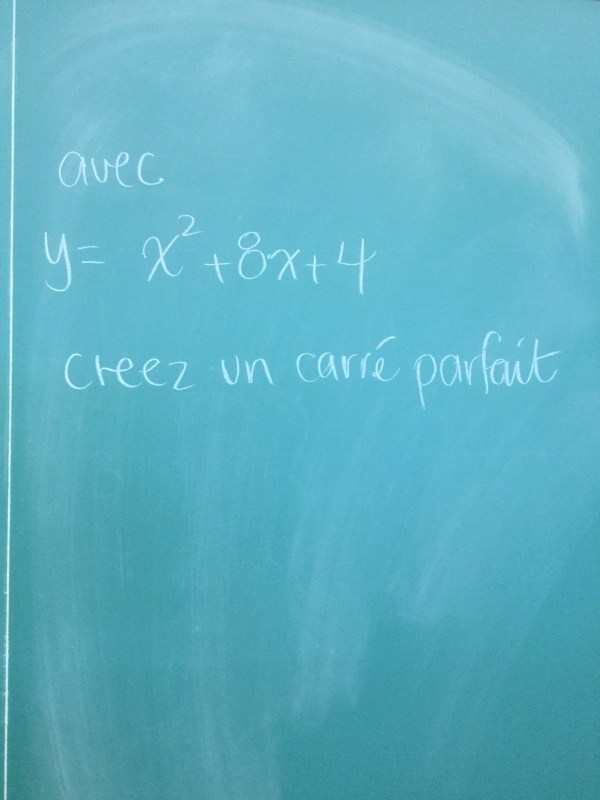 avec
y= x²+8x+4
creez un carré parfait